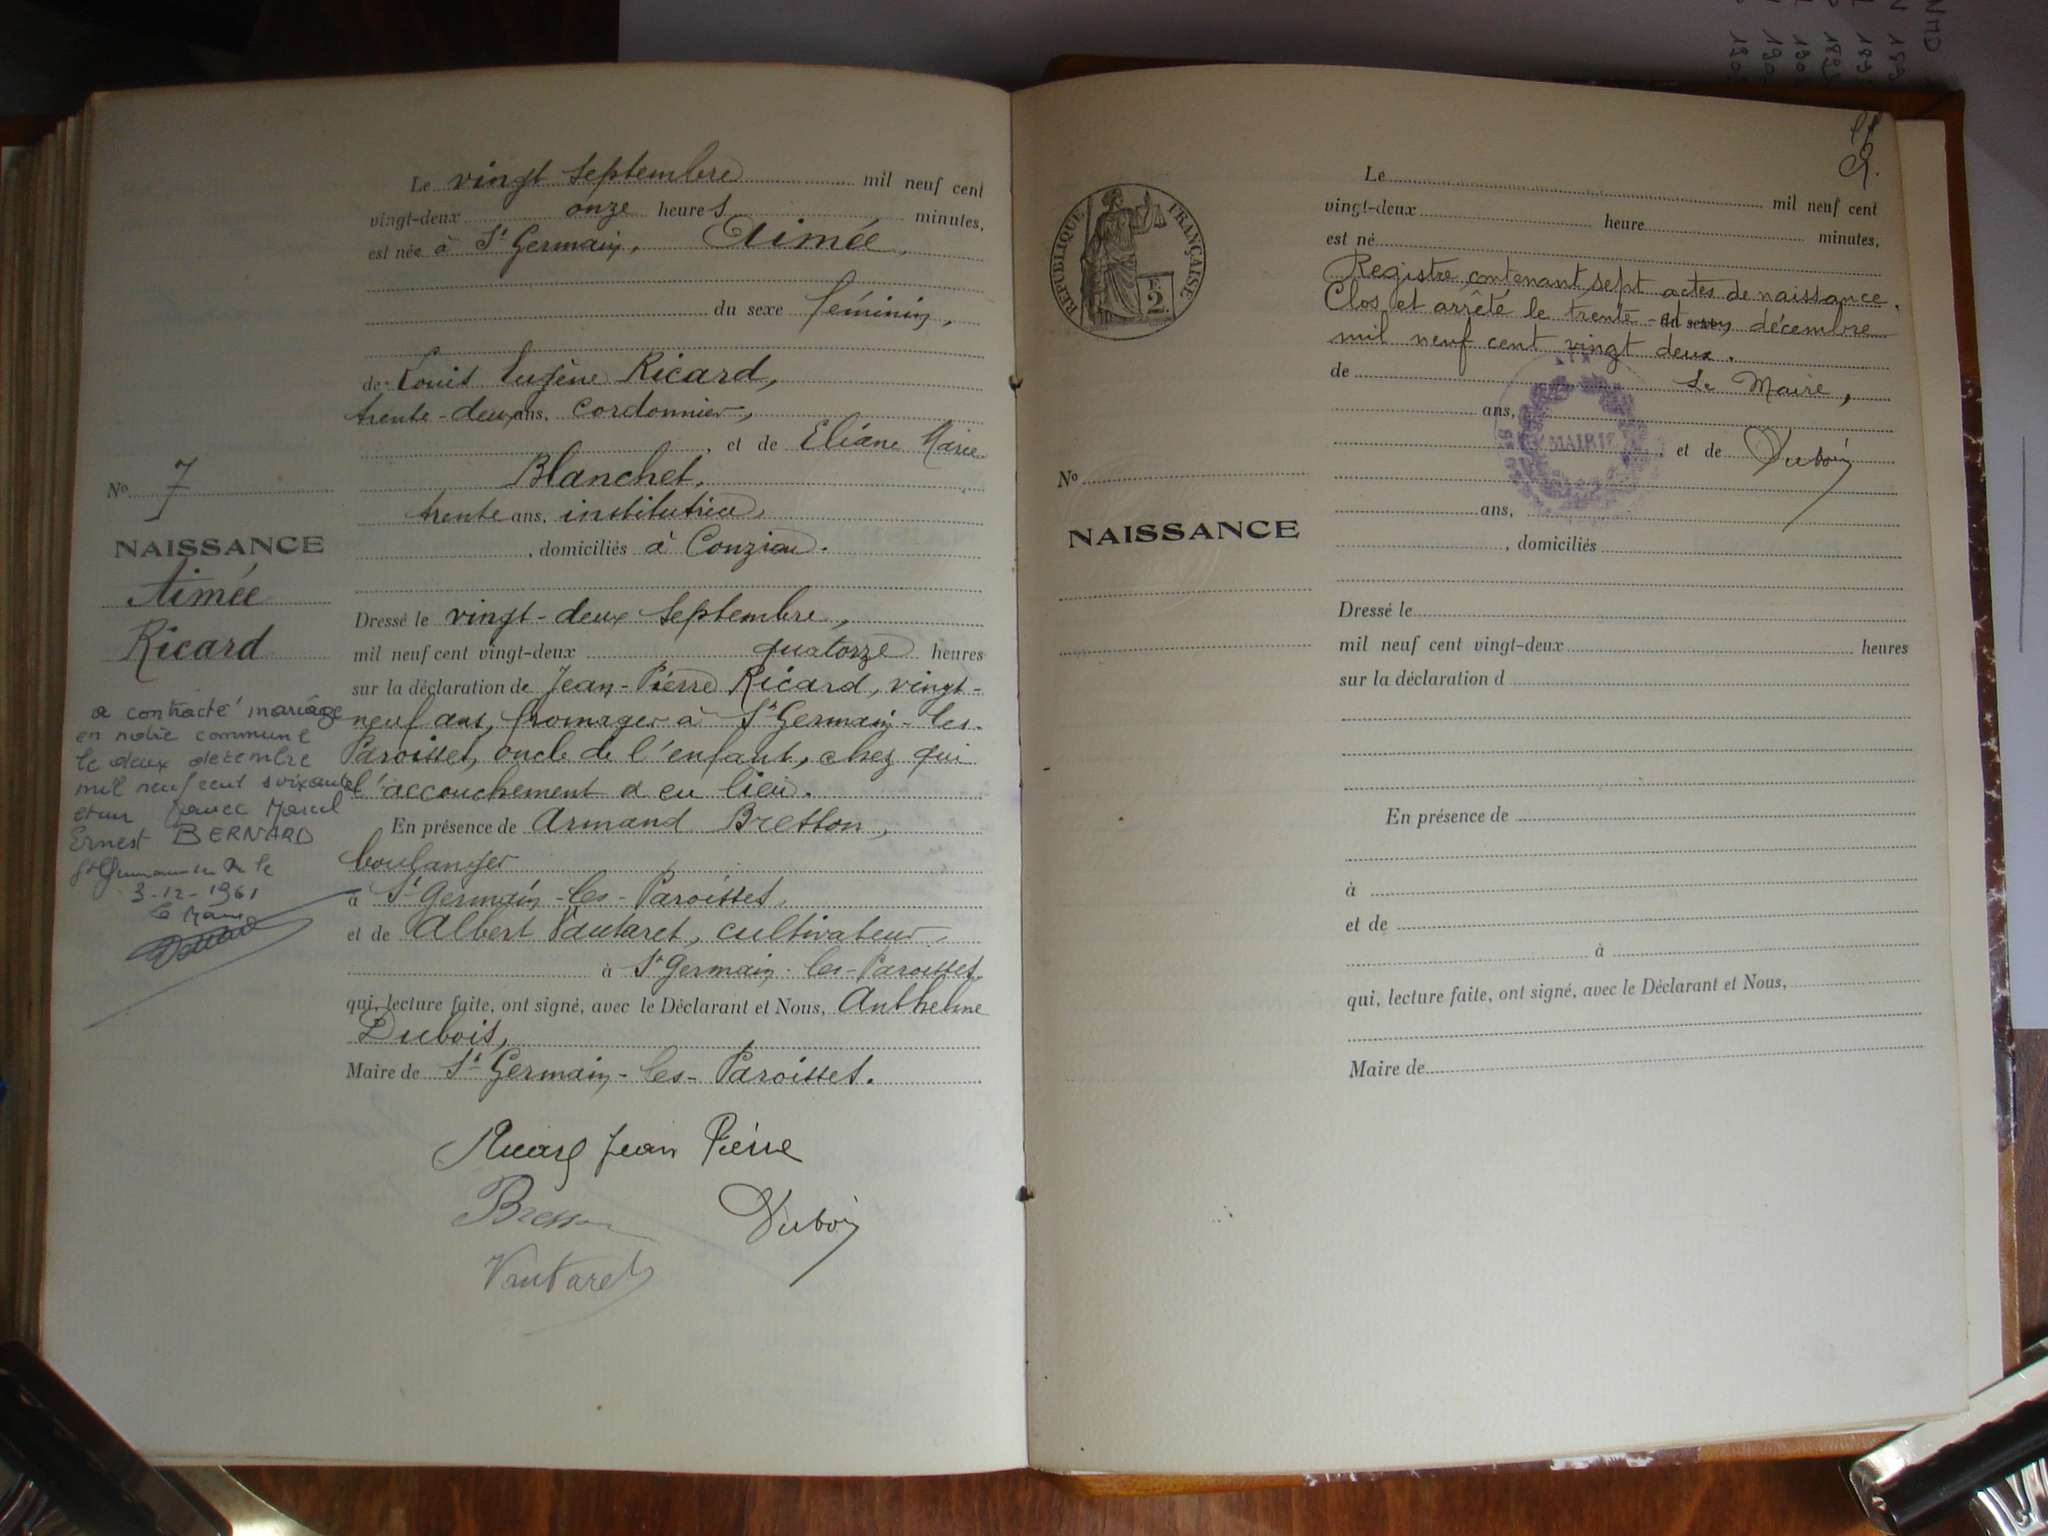 Le vingt septembre mil neuf cent
vingt-deux onze heures minutes,
est née à St Germain, Aimée,
du sexe féminin,
de Louis Eugène Ricard,
trente-deux ans, cordonnier,
, et de Eliane Marie
Blanchet,
trente ans, institutrice,
, domiciliés à Conzieu.
Dressé le vingt-deux septembre,
mil neuf cent vingt-deux quatorze heures
sur la déclaration de Jean-Pierre Ricard, vingt-
neuf ans, fromager à St Germain-les-
Paroisses, oncle de l'enfant, chez qui
l'accouchement a eu lieu.
En présence de Armand Bresson,
boulanger
à St Germain-les-Paroisses,
et de Albert Vautaret, cultivateur,
à St Germain-les-Paroisses,
qui, lecture faite, ont signé, avec le Déclarant et Nous, Anthelme
Dubois,
Maire de St Germain-les-Paroisses.
Ricard Jean Pierre
Bresson Dubois
Vautaret
No 7
NAISSANCE
Aimée
Ricard
a contracté mariage
en notre commune
le deux décembre
mil neuf cent soixante
et un avec Marcel
Ernest BERNARD
St Germain les P. le
3-12-1961
Le Maire
R.
REPUBLIQUE FRANÇAISE
F. 2.
Le mil neuf cent
vingt-deux heure minutes,
est né
Registre contenant sept actes de naissance.
Clos et arrêté le trente-et-un décembre
du sexe
mil neuf cent vingt deux.
de Le Maire,
ans,
MAIRIE
, et de Dubois
ans,
, domiciliés
No
NAISSANCE
Dressé le
mil neuf cent vingt-deux heures
sur la déclaration d
En présence de
à
et de
à
qui, lecture faite, ont signé, avec le Déclarant et Nous,
Maire de